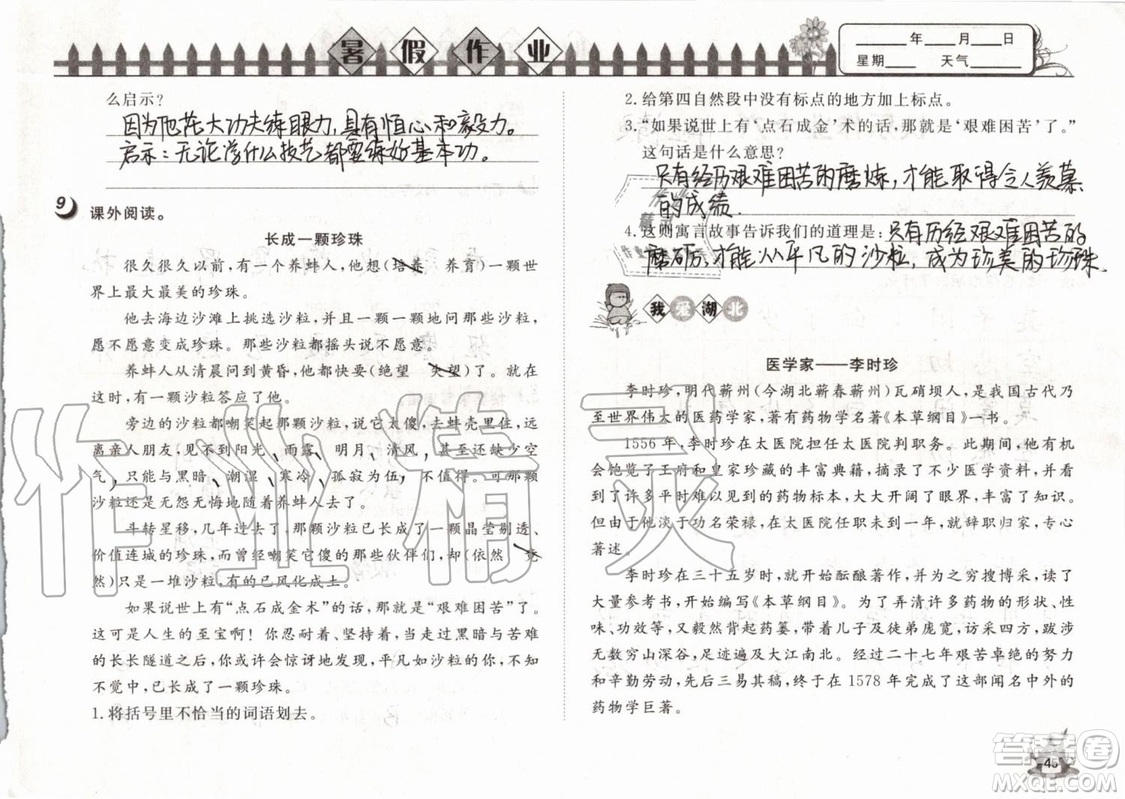 暑假作业
____年____月____日
星期____ 天气____
么启示?
因为他花大功夫练眼力,具有恒心和毅力。
启示:无论学什么技艺都要练好基本功。
9 课外阅读。
长成一颗珍珠
很久很久以前,有一个养蚌人,他想(培养 养育)一颗世
界上最大最美的珍珠。
他去海边沙滩上挑选沙粒,并且一颗一颗地问那些沙粒,
愿不愿意变成珍珠。那些沙粒都摇头说不愿意。
养蚌人从清晨问到黄昏,他都快要(绝望 失望)了。就
在这时,有一颗沙粒答应了他。
旁边的沙粒都嘲笑起那颗沙粒,说它太傻,去蚌壳里住,
远离亲人朋友,见不到阳光、雨露、明月、清风,甚至还缺少空
气,只能与黑暗、潮湿、寒冷、孤寂为伍,不值得。可那颗
沙粒还是无怨无悔地随着养蚌人去了。
斗转星移,几年过去了,那颗沙粒已长成了一颗晶莹剔透、
价值连城的珍珠,而曾经嘲笑它傻的那些伙伴们,却(依然
只是一堆沙粒,有的已风化成土。
如果说世上有“点石成金术”的话,那就是“艰难困苦”了。
这可是人生的至宝啊!你忍耐着、坚持着,当走过黑暗与苦难
的长长隧道之后,你或许会惊讶地发现,平凡如沙粒的你,不知
不觉中,已长成了一颗珍珠。
1.将括号里不恰当的词语划去。
2.给第四自然段中没有标点的地方加上标点。
3.“如果说世上有‘点石成金’术的话,那就是‘艰难困苦’了。”
这句话是什么意思?
只有经历艰难困苦的磨炼,才能取得令人羡慕
的成绩.
4.这则寓言故事告诉我们的道理是:只有历经艰难困苦的
磨砺,才能从平凡的沙粒,成为珍美的珍珠.
我爱湖北
医学家——李时珍
李时珍,明代蕲州(今湖北蕲春蕲州)瓦硝坝人,是我国古代乃
至世界伟大的医药学家,著有药物学名著《本草纲目》一书。
1556年,李时珍在太医院担任太医院判职务。此期间,他有机
会饱览了王府和皇家珍藏的丰富典籍,摘录了不少医学资料,并看
到了许多平时难以见到的药物标本,大大开阔了眼界,丰富了知识。
但由于他淡于功名荣禄,在太医院任职未到一年,就辞职归家,专心
著述。
李时珍在三十五岁时,就开始酝酿著作,并为之穷搜博采,读了
大量参考书,开始编写《本草纲目》。为了弄清许多药物的形状、性
味、功效等,又毅然背起药篓,带着儿子及徒弟庞宽,访采四方,跋涉
无数穷山深谷,足迹遍及大江南北。经过二十七年艰苦卓绝的努力
和辛勤劳动,并先后三易其稿,终于在1578年完成了这部闻名中外的
药物学巨著。
45
作业精灵
答案圈
MXQE.COM